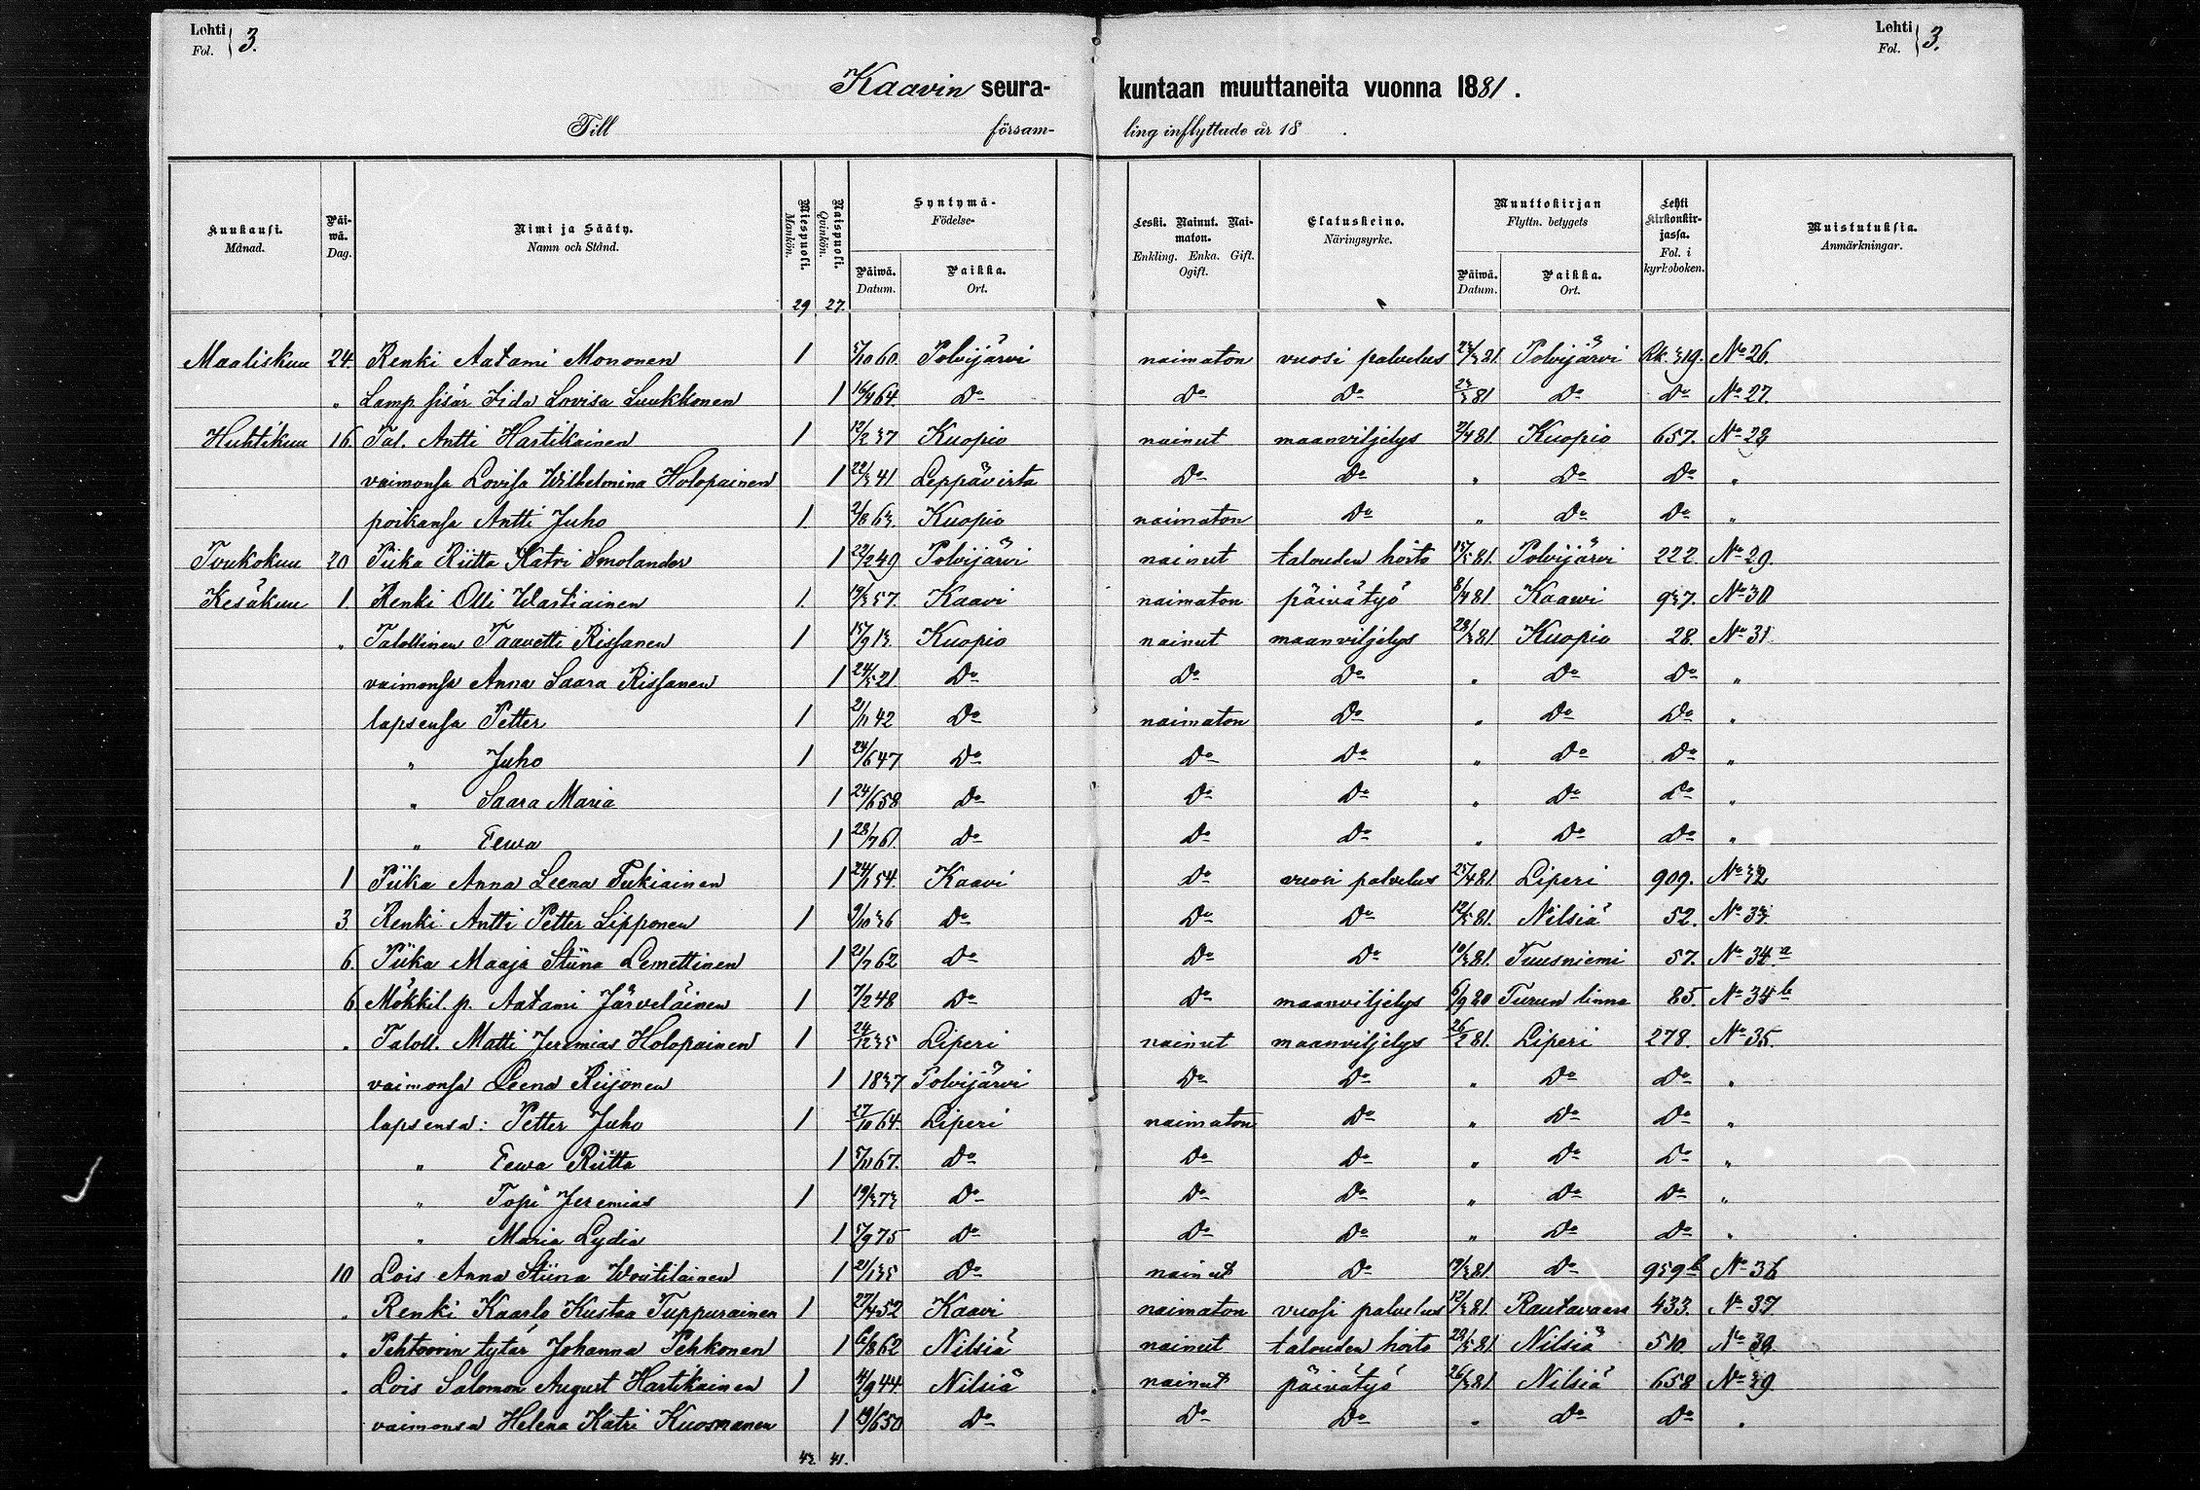 Lehti Fol. } 3.
Lehti Fol. } 3.
Kaavin seura- kuntaan muuttaneita vuonna 1881.
Till försam- ling inflyttade år 18 .
Kuukausi. Månad. Päiwä. Dag. Nimi ja Sääty. Namn och Stånd. Miespuoli. Mankön. Naispuoli. Qvinkön. Syntymä- Födelse- Päiwä. Datum. Paikka. Ort. Leski. Nainut. Naimaton. Enkling. Enka. Gift. Ogift. Elatuskeino. Näringsyrke. Muuttokirjan Flyttn. betygets Päiwä. Datum. Paikka. Ort. Lehti kirkonkirjassa. Fol. i kyrkoboken. Muistutuksia. Anmärkningar.
29. 27.
Maaliskuu 24. Renki Aatami Mononen 1 5/10 60. Polvijärvi naimaton vuosi palvelus 23/3 81. Polvijärvi Rk. 319. No 26.
„ Lamp. sisär Iida Lovisa Luukkonen 1 64. Do Do Do 23/3 81 Do Do No 27.
Huhtikuu 16. Tal. Antti Hartikainen 1 12/2 37 Kuopio nainut maanviljelys 2/4 81. Kuopio 657. No 28
vaimonsa Lovisa Wilhelmina Holopainen 1 22/3 41 Leppävirta Do Do „ Do Do „
poikansa Antti Juho 1. 2/8 63. Kuopio naimaton Do „ Do Do „
Toukokuu 20 Piika Riitta Katri Smolander 1 22/2 49 Polvijärvi nainut talouden hoito 15/5 81. Polvijärvi 222. No 29.
Kesäkuu 1. Renki Olli Wartiainen 1. 19/3 57. Kaavi naimaton päivätyö 8/4 81. Kaawi 937. No 30
„ Talollinen Taavetti Rissanen 1 15/9 13. Kuopio nainut maanviljelys 28/3 81 Kuopio 28. No 31
vaimonsa Anna Saara Rissanen 1 24/5 21 Do Do Do „ Do Do „
lapsensa Petter 1 2/11 42 Do naimaton Do „ Do Do „
„ Juho 1 24/6 47 Do Do Do „ Do Do „
„ Saara Maria 1 24/6 58 Do Do Do „ Do Do „
„ Eewa 1 28/7 61. Do Do Do „ Do Do „
1 Piika Anna Leena Tukiainen 1 24/1 54. Kaavi Do vuosi palvelus 25/4 81. Liperi 909. No 32
3. Renki Antti Petter Lipponen 1 9/10 36 Do Do Do 12/5 81. Nilsiä 52. No 33.
6. Piika Maaja Stiina Lemettinen 1 21/7 62 Do Do Do 10/3 81. Tuusniemi 57. No 34 a
6. Mökkil. p. Aatami Järveläinen 1 7/2 48 Do Do maanviljelys 6/9 80 Turun linna 85. No 34 b
„ Taloll. Matti Jeremias Holopainen 1 24/12 35 Liperi nainut maanviljelys 26/2 81. Liperi 278. No 35.
vaimonsa Leena Reijonen 1 1837 Polvijärvi Do Do „ Do Do „
lapsensa: Petter Juho 1 27/10 64. Liperi naimaton Do „ Do Do „
„ Eewa Riitta 1 5/11 67. Do Do Do „ Do Do „
„ Topi Jeremias 1 19/3 73 Do Do Do „ Do Do „
„ Maria Lydia 1 5/9 75 Do Do Do „ Do Do „
10 Lois Anna Stiina Woutilainen 1 21/1 35 Do nainut Do 19/3 81. Do 959 b No 36
„ Renki Kaarlo Kustaa Tuppurainen 1 27/4 52 Kaavi naimaton vuosi palvelus 12/3 81. Rautavaara 433. No 37
„ Pehtoorin tytär Johanna Pehkonen 1 6/8 62 Nilsiä nainut talouden hoito 28/5 81 Nilsiä 510. No 38
„ Lois Salomon August Hartikainen 1 4/9 44 Nilsiä nainut päivätyö 26/3 81 Nilsiä 658 No 39
vaimonsa Helena Katri Kuosmanen 1 19/6 50 Do Do Do „ Do Do „
43. 41.